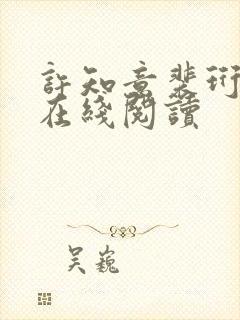 許知意裴珩
在綫閱讀
吴巍